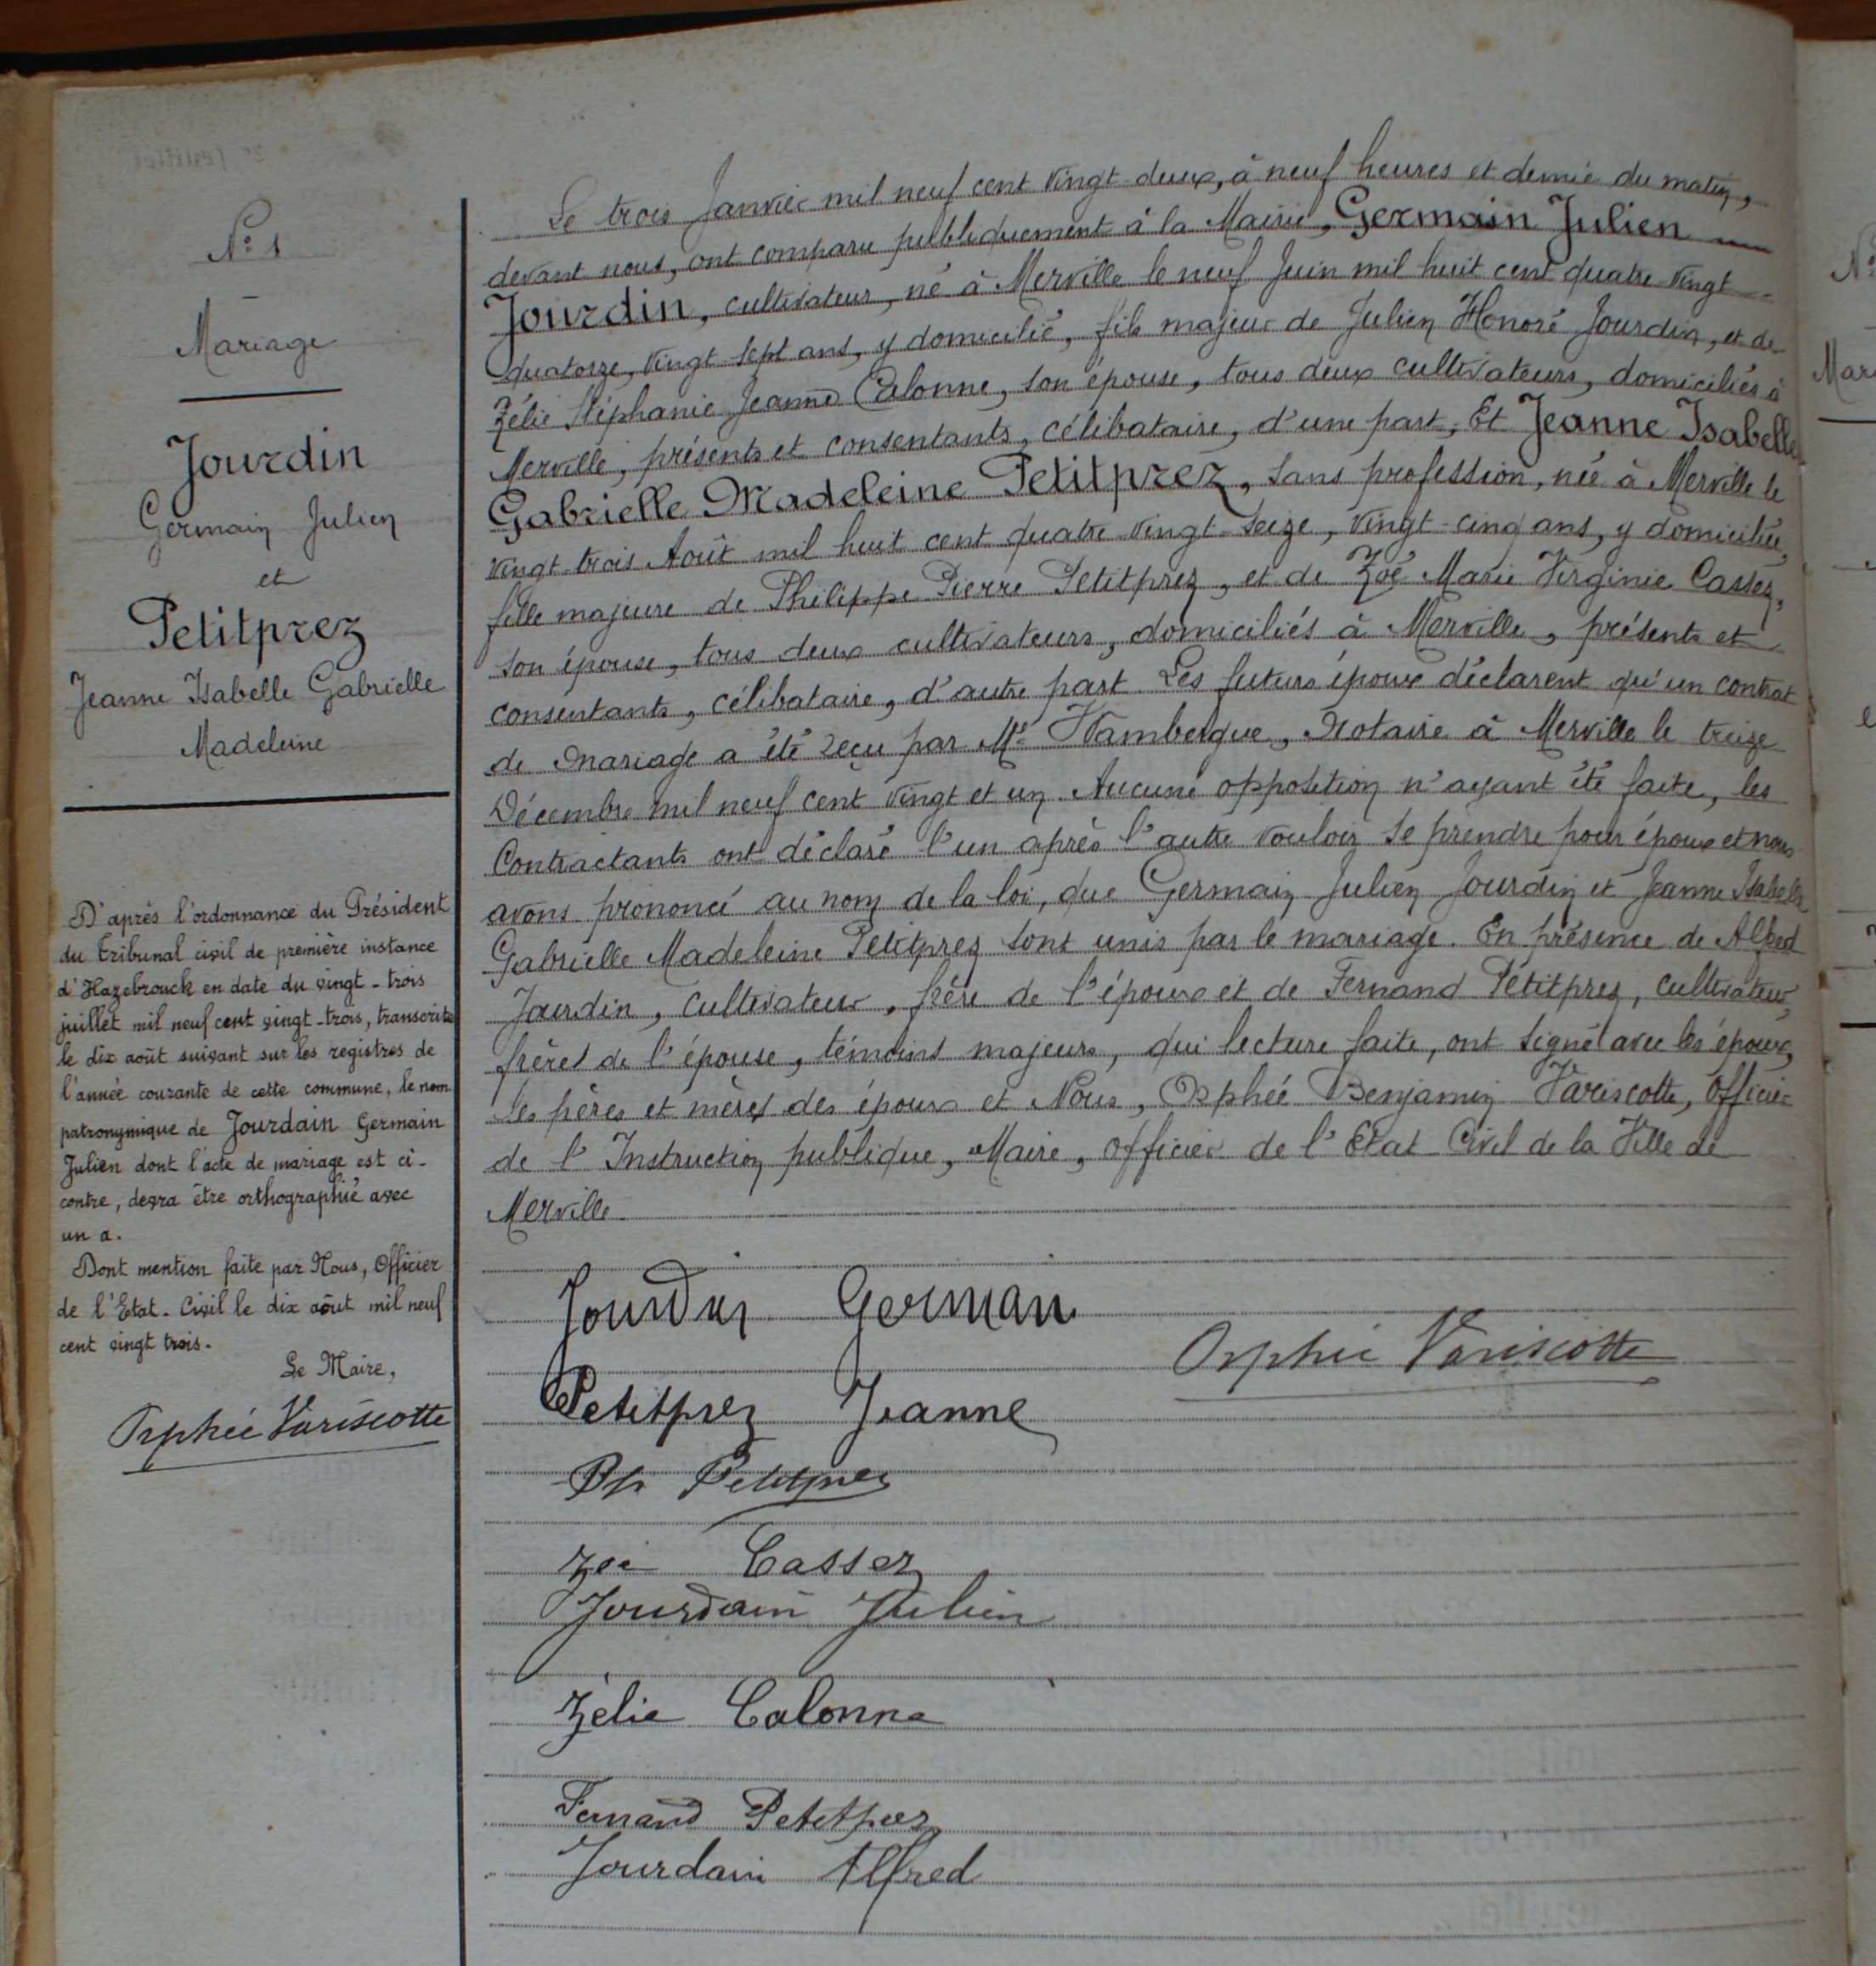 N° 1
Mariage
Jourdin
Germain Julien
et
Petitprez
Jeanne Isabelle Gabrielle
Madeleine
D'après l'ordonnance du Président
du tribunal civil de première instance
d'Hazebrouck en date du vingt-trois
juillet mil neuf cent vingt-trois, transcrite
le dix août suivant sur les registres de
l'année courante de cette commune, le nom
patronymique de Jourdain Germain
Julien dont l'acte de mariage est ci-
contre, devra être orthographié avec
un a.
Dont mention faite par Nous, Officier
de l'Etat-Civil le dix août mil neuf
cent vingt trois.
Le Maire,
Orphée Variscotte
Le trois Janvier mil neuf cent vingt-deux, à neuf heures et demie du matin,
devant nous, ont comparu publiquement à la Mairie, Germain Julien
Jourdin, cultivateur, né à Merville le neuf Juin mil huit cent quatre-vingt-
quatorze, vingt-sept ans, y domicilié, fils majeur de Julien Honoré Jourdin, et de
Zélie Stéphanie Jeanne Calonne, son épouse, tous deux cultivateurs, domiciliés à
Merville, présents et consentants, célibataire, d'une part, Et Jeanne Isabelle
Gabrielle Madeleine Petitprez, sans profession, née à Merville le
vingt-trois Août mil huit cent quatre-vingt-seize, vingt-cinq ans, y domiciliée,
fille majeure de Philippe Pierre Petitprez, et de Zoé Marie Virginie Cassez,
son épouse, tous deux cultivateurs, domiciliés à Merville, présents et
consentants, célibataire, d'autre part. Les futurs époux déclarent qu'un contrat
de mariage a été reçu par Me Wambergue, Notaire à Merville le treize
Décembre mil neuf cent vingt et un. Aucune opposition n'ayant été faite, les
Contractants ont déclaré l'un après l'autre vouloir se prendre pour époux et nous
avons prononcé au nom de la loi, que Germain Julien Jourdin et Jeanne Isabelle
Gabrielle Madeleine Petitprez sont unis par le mariage. En présence de Alfred
Jourdin, cultivateur, frère de l'époux et de Fernand Petitprez, cultivateur,
frère de l'épouse, témoins majeurs, qui lecture faite, ont signé avec les époux,
les pères et mères des époux et Nous, Orphée Benjamin Variscotte, Officier
de l'Instruction publique, Maire, officier de l'Etat Civil de la Ville de
Merville
Jourdin Germain
Orphée Variscotte
Petitprez Jeanne
Ph Petitprez
Zoé Cassez
Jourdain Julien
Zélie Calonne
Fernand Petitprez
Jourdain Alfred